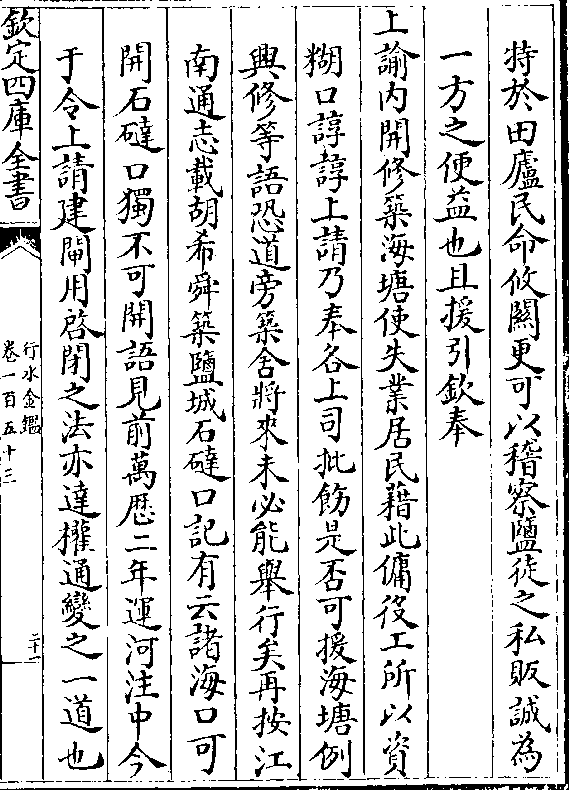 特於田廬民命攸關更可以稽察鹽徒之私販誠為
一方之便益也且援引欽奉
上諭内開修築海塘使失業居民藉此傭役工所以資
糊口諄諄上請乃奉各上司批飭是否可援海塘例
興修等語恐道旁築舍將來未必能舉行矣再按江
南通志載胡希舜築鹽城石䃮口記有云諸海口可
開石䃮口獨不可開語見前萬歷二年運河注中今
于令上請建閘用啓閉之法亦達權通變之一道也
欽定四庫全書
行水金鑑
卷一百五十三
二十一